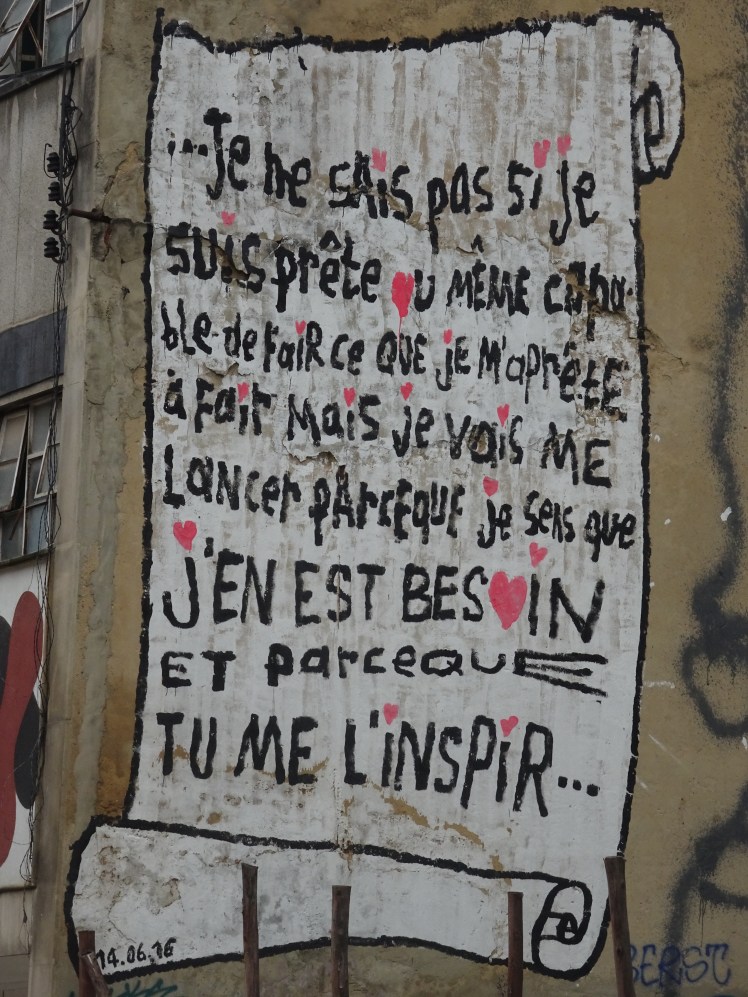 ...Je ne sais pas si je
suis prête ou MÊME capa-
ble-de FaiR ce QUE je M'aprêtE
à Fair Mais je vais ME
Lancer pArcEQUE je sens que
J'EN EST BESOIN
ET parceQUE
TU ME L'iNSPiR...
14.06.16